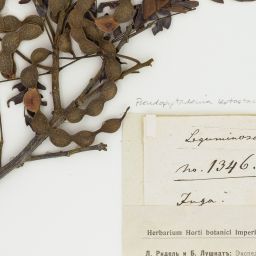 Pseudopiptadenia leptostach
Leguminosa
No. 1346.
Inga.
Herbarium Horti botanici Imperi
Л. Ридель и Б. Лушнатъ: Экспед